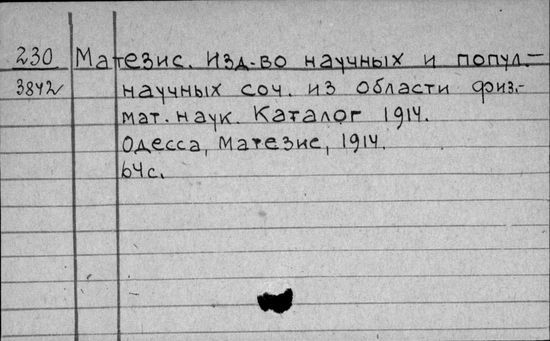 230 Матезис. Изд-во научных и попул.-
3842 научных соч. из области физ.-
мат. наук. Каталог 1914.
Одесса, Матезис, 1914.
64с.